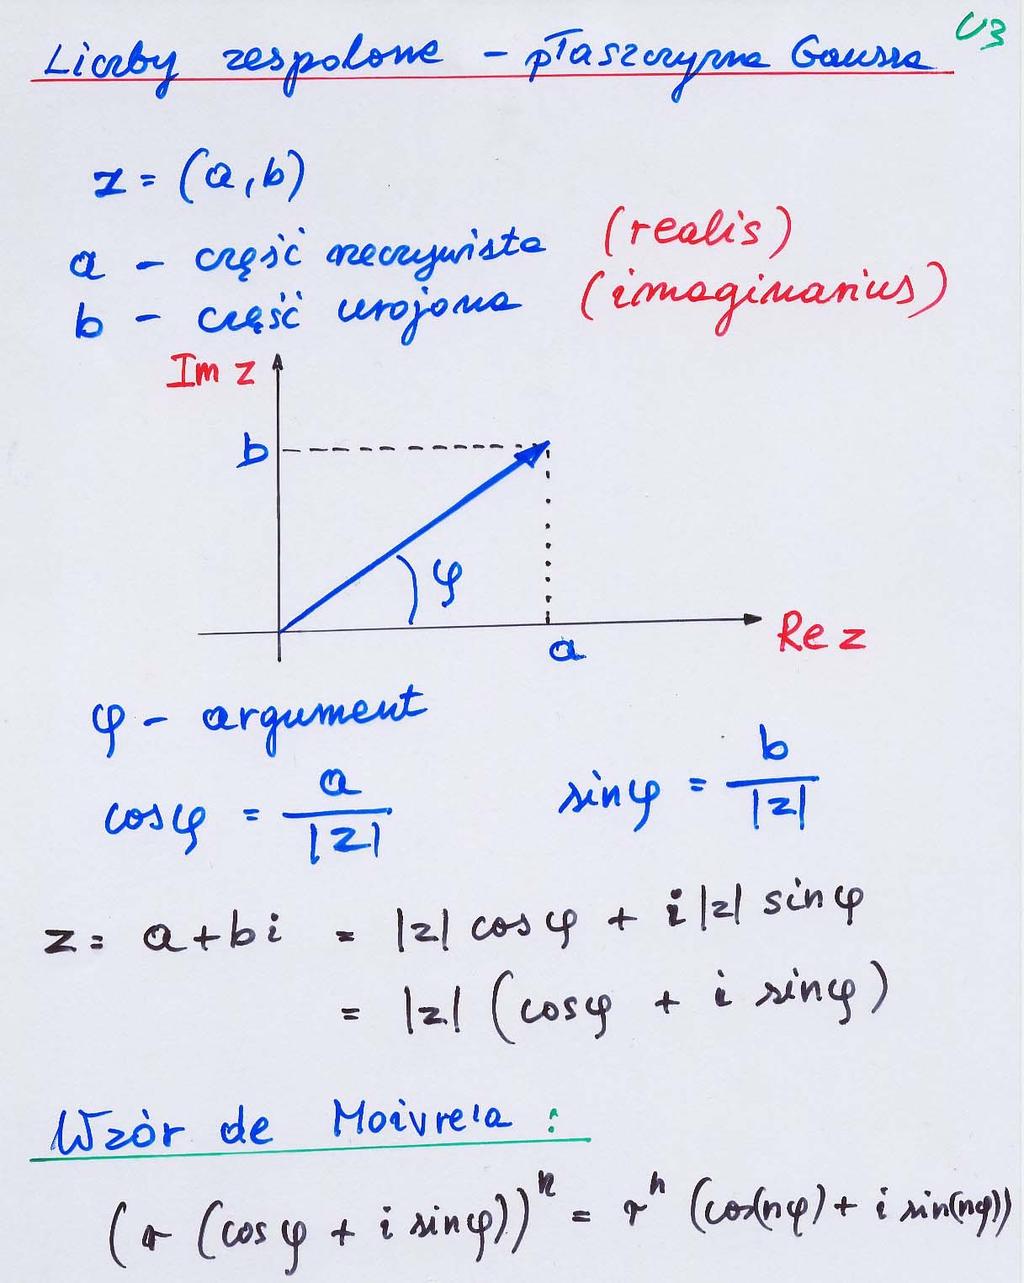 U3
Liczby zespolone – płaszczyzna Gaussa
z = (a, b)
a – część rzeczywista (realis)
b – część urojona (imaginarius)
Im z
b
φ
Re z
a
φ – argument
cos φ = a/|z| sin φ = b/|z|
z = a + bi = |z| cos φ + i |z| sin φ
= |z| (cos φ + i sin φ)
Wzór de Moivre'a :
(r (cos φ + i sin φ))^n = r^n (cos(nφ) + i sin(nφ))